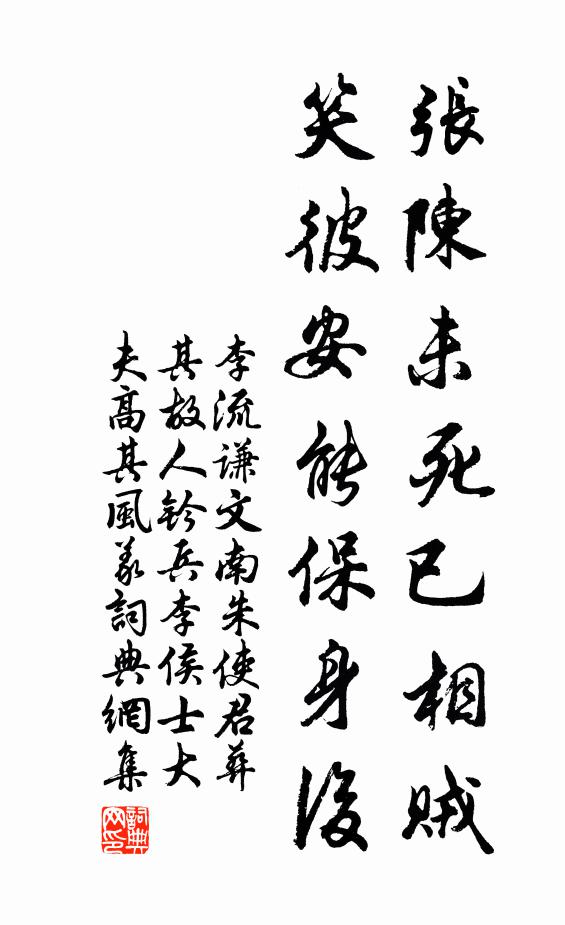 張陳未死已相賊
笑彼安能保身後
李流謙文南朱使君葬
其故人鈐兵李侯士大
夫高其風義詞典網集
詞典
网印